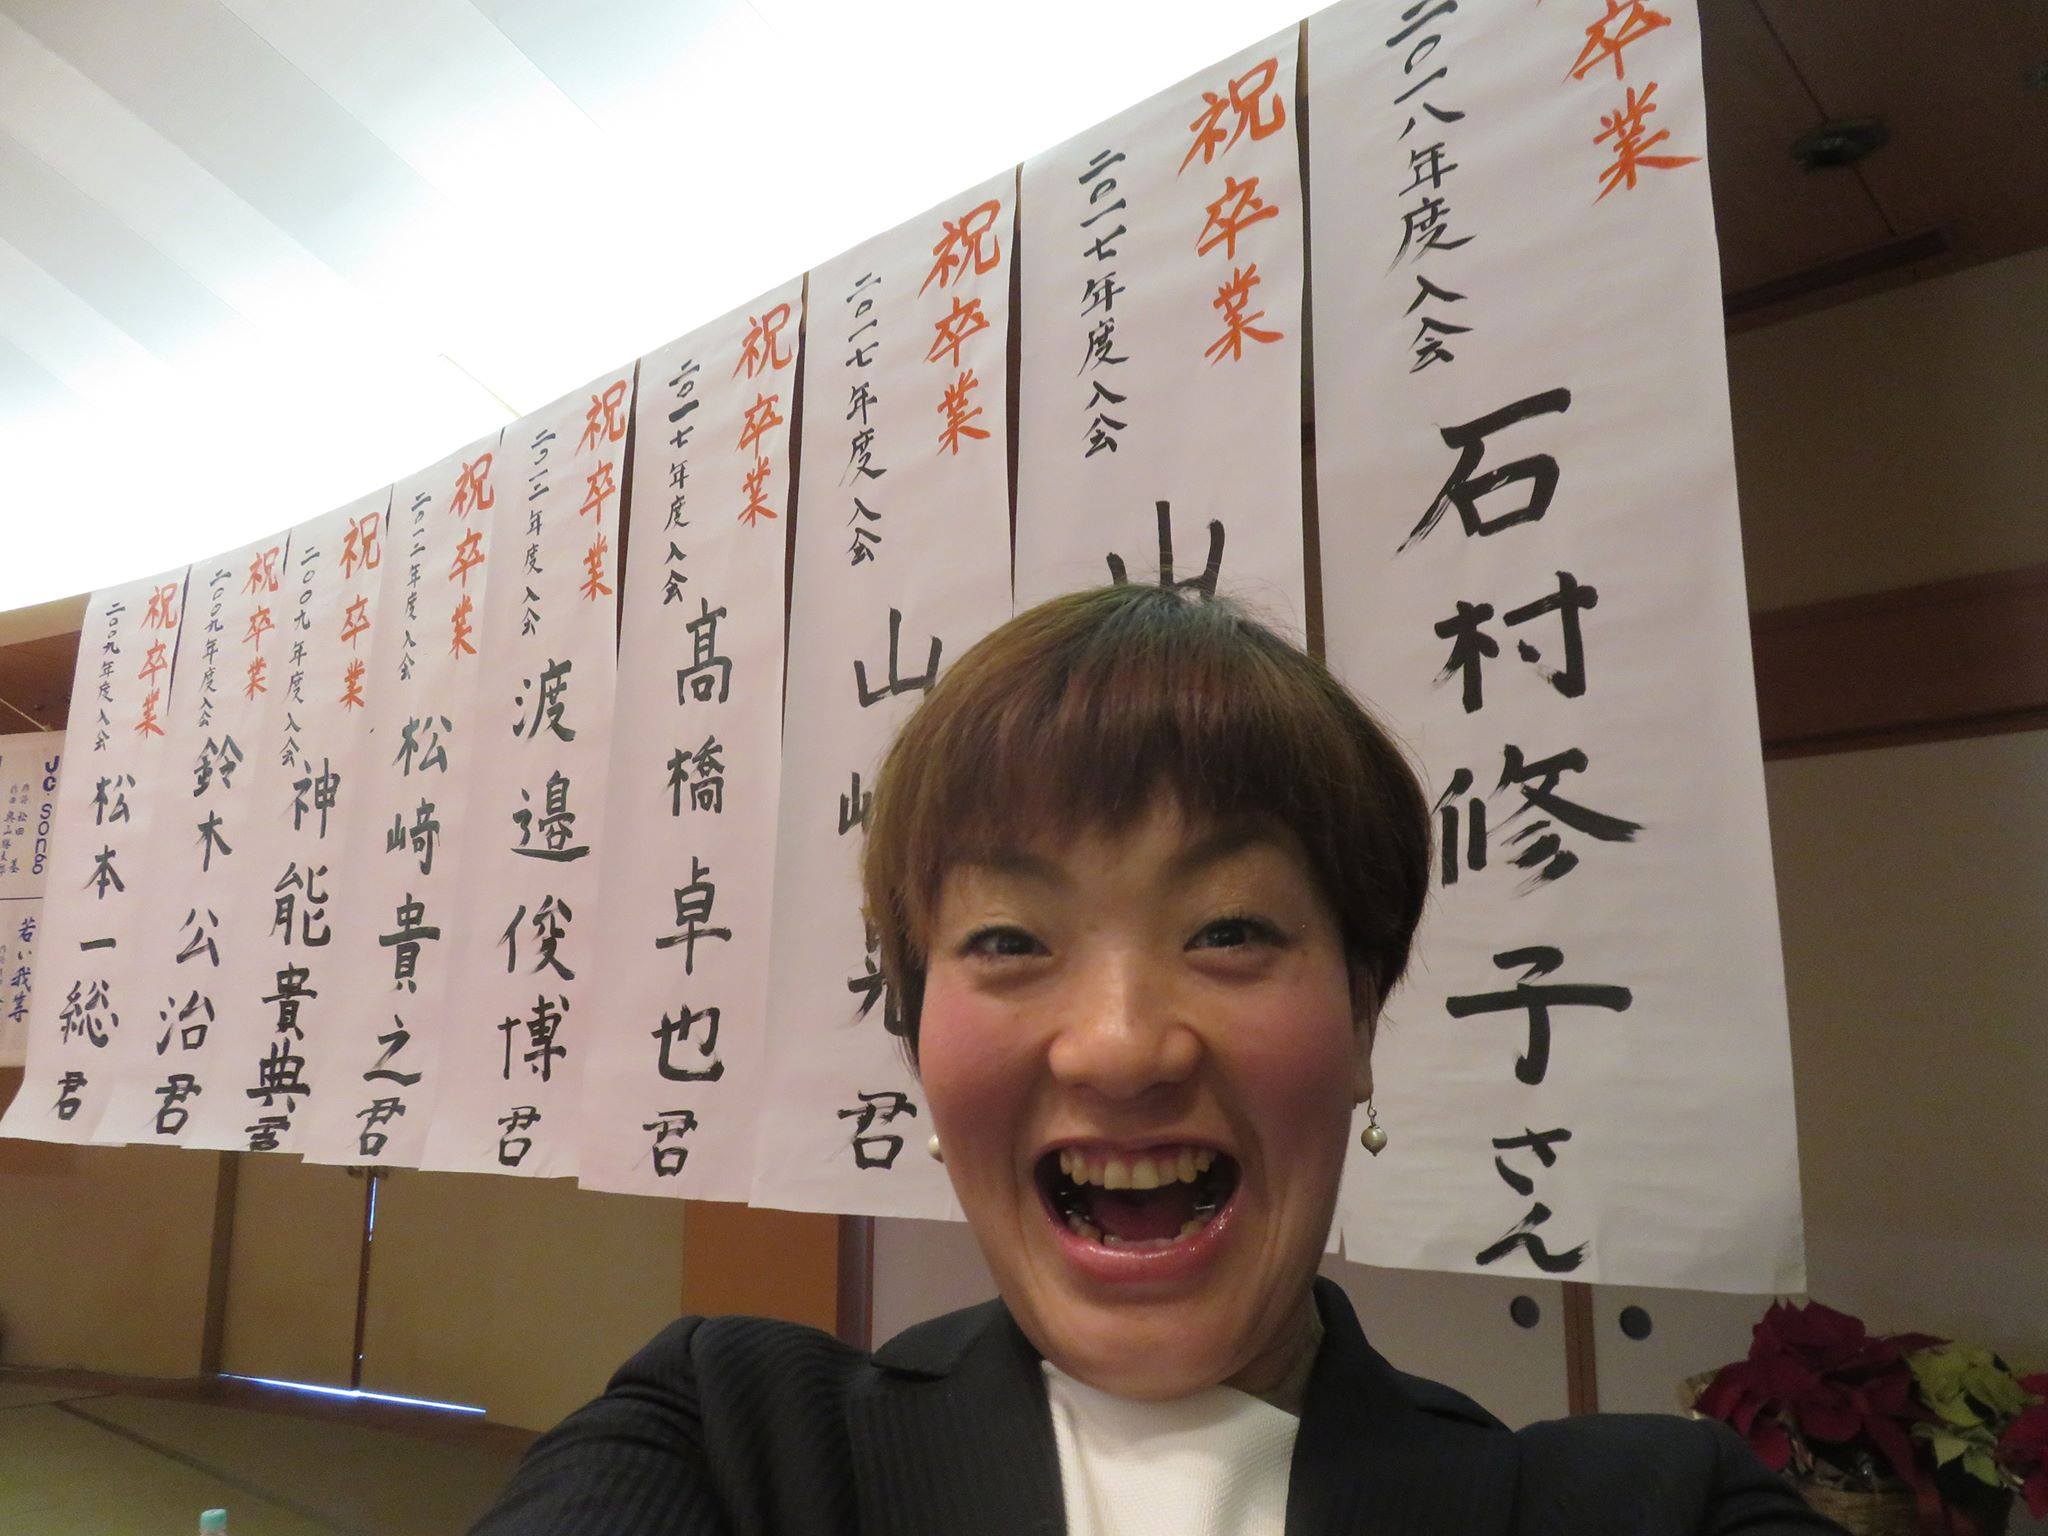 卒業
二〇一八年度入会
石村修子さん
祝卒業
二〇一七年度入会
山
祝卒業
二〇一七年度入会
山崎
君
祝卒業
二〇一七年度入会
髙橋卓也君
祝卒業
二〇一二年度入会
渡邉俊博君
祝卒業
二〇一二年度入会
松﨑貴之君
祝卒業
二〇〇九年度入会
神能貴典君
祝卒業
二〇〇九年度入会
鈴木公治君
祝卒業
二〇〇九年度入会
松本一総君
JC Song
若い我等